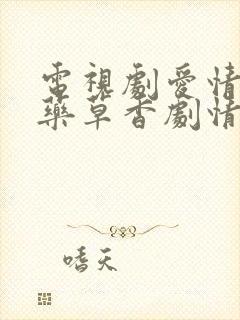 電視劇愛情
藥草香劇情
嗜天